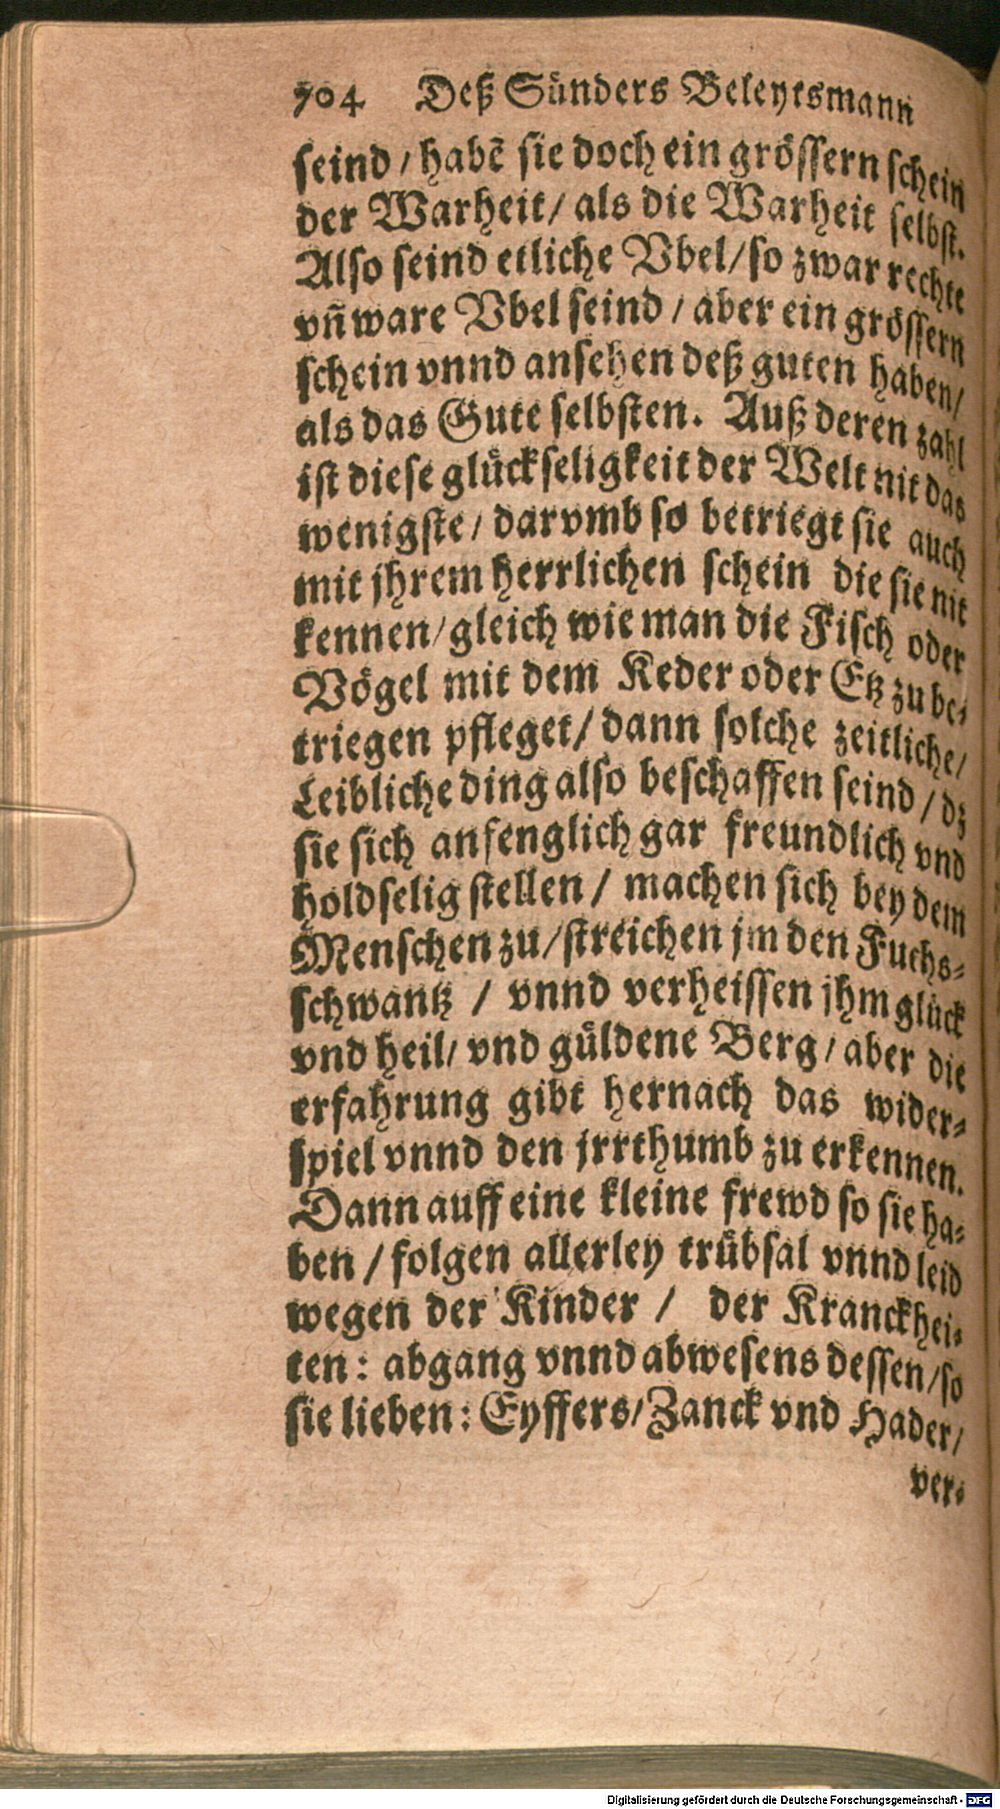 704 Deß Sünders Beleytsmann
seind / habē sie doch ein grössern schein
der Warheit / als die Warheit selbst.
Also seind etliche Vbel / so zwar rechte
vñ ware Vbel seind / aber ein grössern
schein vnnd ansehen deß guten haben /
als das Gute selbsten. Auß deren zahl
ist diese glückseligkeit der Welt nit das
wenigste / darvmb so betriegt sie auch
mit jhrem herrlichen schein die sie nit
kennen / gleich wie man die Fisch oder
Vögel mit dem Keder oder Etz zu be-
triegen pfleget / dann solche zeitliche /
Leibliche ding also beschaffen seind / dz
sie sich anfenglich gar freundlich vnd
holdselig stellen / machen sich bey dem
Menschen zu / streichen jm den Fuchs-
schwantz / vnnd verheissen jhm glück
vnd heil / vnd güldene Berg / aber die
erfahrung gibt hernach das wider-
spiel vnnd den jrrthumb zu erkennen.
Dann auff eine kleine frewd so sie ha-
ben / folgen allerley trübsal vnnd leid
wegen der Kinder / der Kranckhei-
ten : abgang vnnd abwesens dessen / so
sie lieben : Eyffers / Zanck vnd Hader /
ver-
Digitalisierung gefördert durch die Deutsche Forschungsgemeinschaft - DFG